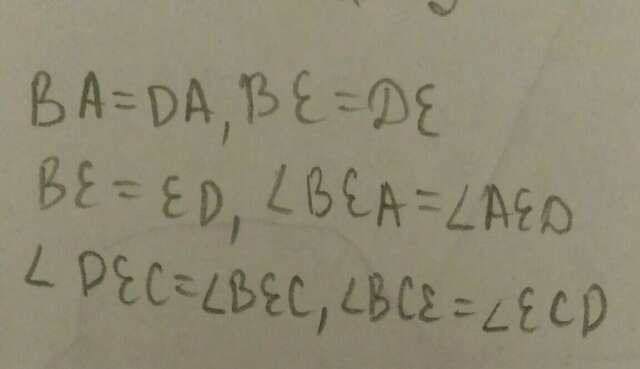 BA=DA, BE=DE
BE=ED, ∠BEA=∠AED
∠DEC=∠BEC, ∠BCE=∠ECD